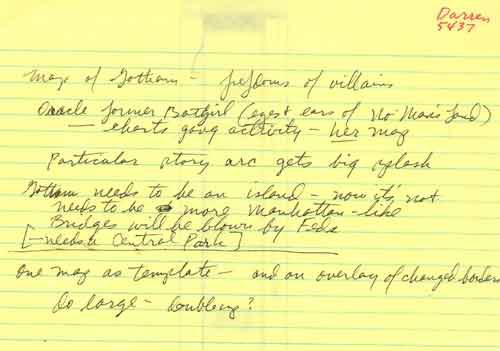 Darren
5437
Map of Gotham - fiefdoms of villains
Oracle former Batgirl (eyes & ears of No Man's Land)
— charts gang activity — her map
Particular story arc gets big splash
Gotham needs to be an island - now it's not
needs to be more Manhattan-like
Bridges will be blown by Feds
[-needs Central Park]
One map as template - and an overlay of changed borders
Do large - doubling?